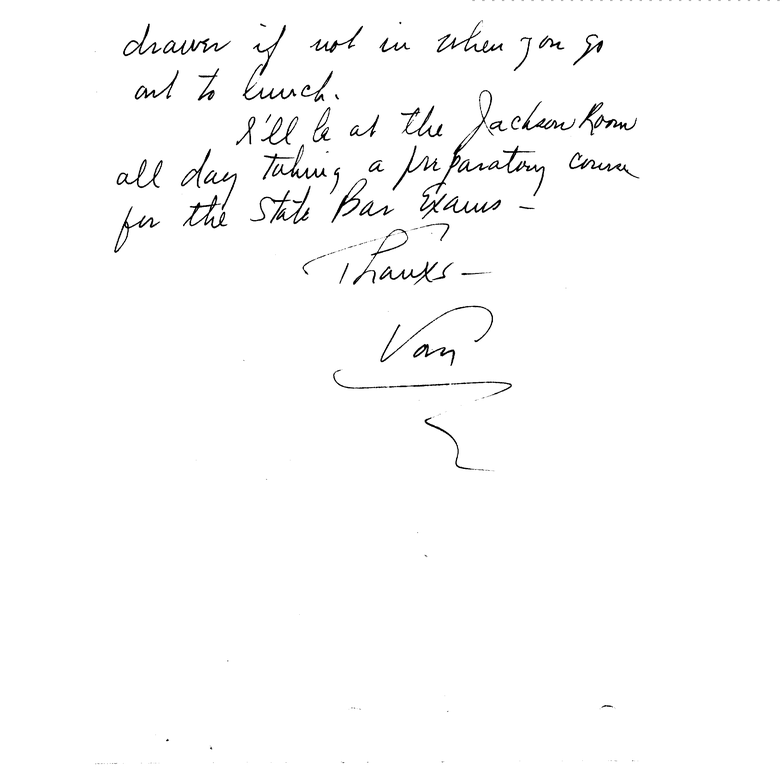 drawer if not in when you go
out to lunch.
I'll be at the Jackson Room
all day taking a preparatory course
for the State Bar Exams –
Thanks –
Van